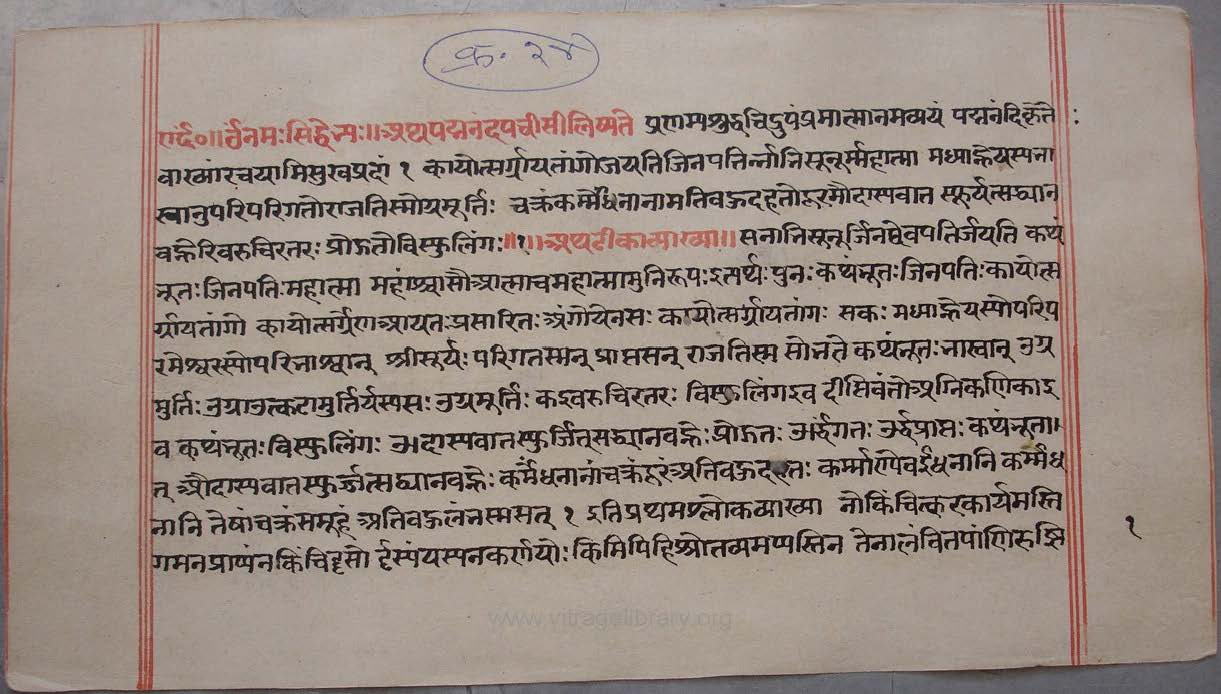 क्र. २४
एर्द०॥ र्उंनमःसिद्धेभ्यः॥ अथपद्मनंदपचीसीलिष्यते प्रणम्यशुद्धचिद्रुपंप्रमात्मानमव्ययं पद्मनंदिकृते :
वाख्यांरचयामिसुखप्रदां १ कायोत्सर्ग्गायतांगोजयतिजिनपतिर्न्नाभिसूनुर्म्महात्मा मध्याह्नेयस्यभा
स्वानुपरिपरिगतोराजतिस्मोग्रमुर्त्तिः चक्रंकर्म्मेंधनानामतिवऊदहतोदुरमौदास्यवात स्फुर्यत्सद्ध्यान
वह्नेरिवरुचिरतरः प्रोऊतोविस्फुलिंगः॥१॥ अथटीकाव्याख्या॥ सनाभिसूनुर्जिनश्चेवपतिर्जयति कथं
भूतः जिनपतिःमहात्मा महांश्चासौआत्माचमहात्मामुनिरूपःइतर्थःपुनःकथंभूतःजिनपतिःकायोत्स
र्ग्गायतांगो कायोत्सर्ग्गेणआयतःप्रसारितःअंगोयेनसः कायोत्सर्ग्गायतांगः सकः मध्याह्नेयस्योपरिप
रमेश्वरस्योपरिभाश्वान् श्रीसूर्यःपरिगतस्सन् प्राप्तसन् राजतिस्म सोभते कथंभूतःभास्वान् उग्र
मुर्तिः उग्राउत्कटामुर्तिर्यस्यसःउग्रमूर्तिः कइवरुचिरतरः विस्फुलिंगइव दीप्तिवंतोअग्निकणिकाइ
व कथंभूतःविस्फुलिंगः अदास्यवातस्फुर्जितसद्ध्यानवह्नेःप्रोऊतः अर्द्धगतः अर्द्धप्राप्तः कथंभूता
त् औदास्यवातस्फुर्ज्जत्सद्ध्यानवह्नेः कर्मेंधनानांचक्रंदूरंअतिवऊदहतः कर्म्माण्येवइंधनानि कर्म्मेंध
नानि तेषांचक्रंसमूहं अतिवऊलंभस्मसत् १ इतिप्रथमश्लोकव्याख्या नोकिंचित्करकार्यमस्ति
गमनप्राप्यंनकिंचिदृसो र्दृस्यंयस्यनकर्णयोः किमिपिहिश्रोतव्यमप्यस्तिन तेनालंवितपाणिरुझि
१
www.vitragelibrary.org